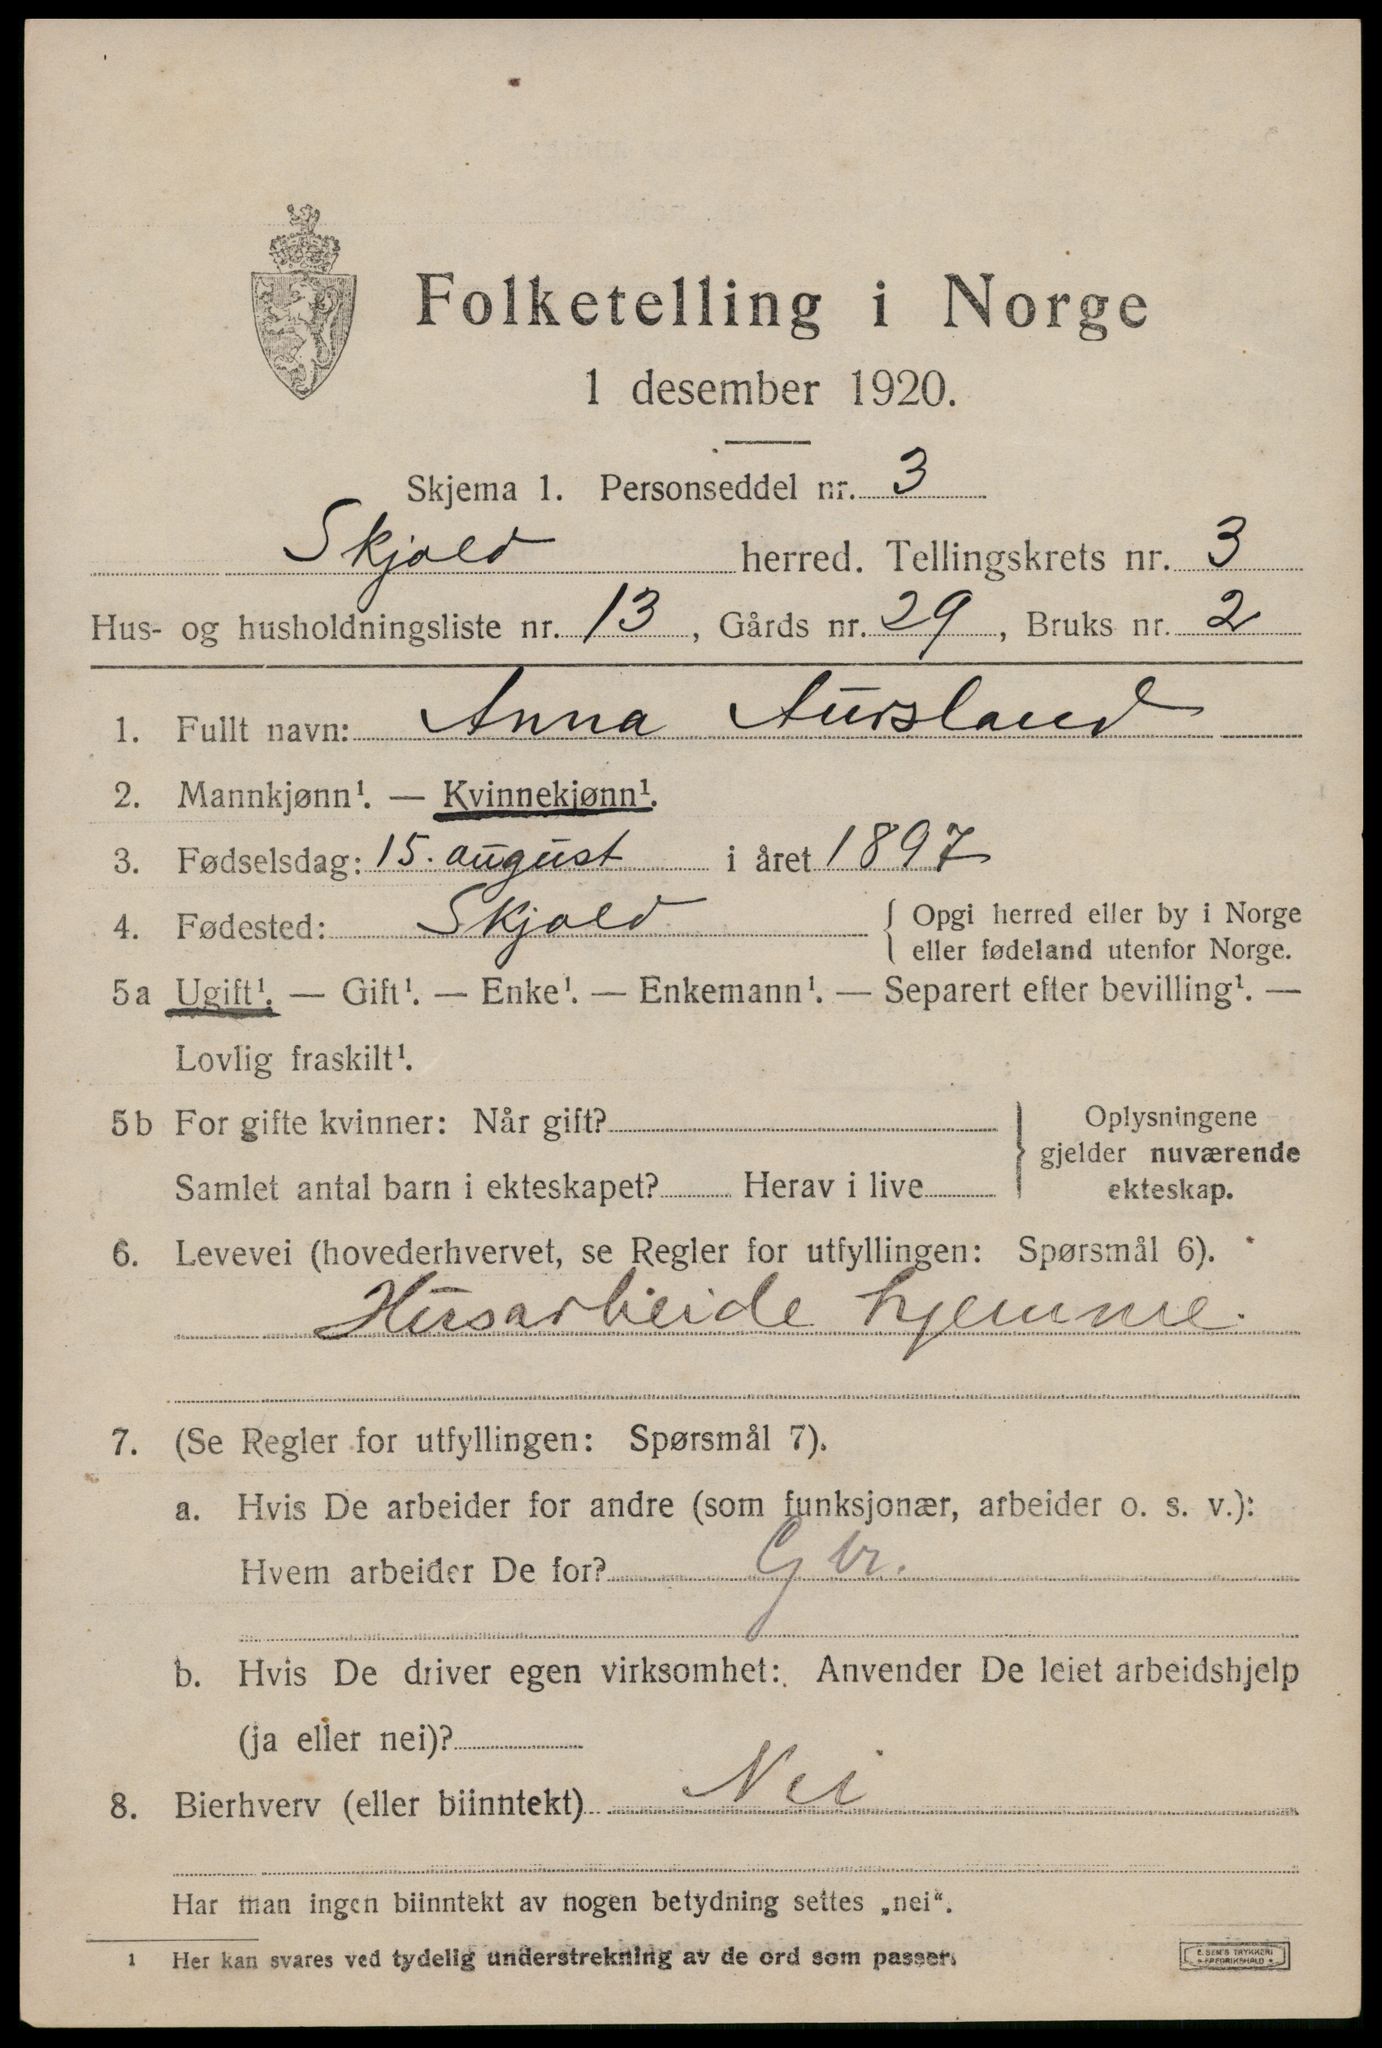 Folketelling i Norge
1 desember 1920.
Skjema 1. Personseddel nr. 3
Skjold herred. Tellingskrets nr. 3
Hus- og husholdningsliste nr. 13, Gårds nr. 29, Bruks nr. 2
1. Fullt navn: Anna Aursland
2. Mannkjønn¹. — Kvinnekjønn¹.
3. Fødselsdag: 15. august i året 1897
4. Fødested: Skjold { Opgi herred eller by i Norge
eller fødeland utenfor Norge.
5a Ugift¹. — Gift¹. — Enke¹. — Enkemann¹. — Separert efter bevilling¹. —
Lovlig fraskilt¹.
5b For gifte kvinner: Når gift? } Oplysningene
gjelder nuværende
Samlet antal barn i ekteskapet? Herav i live ekteskap.
6. Levevei (hovederhvervet, se Regler for utfyllingen: Spørsmål 6).
Husarbeide hjemme.
7. (Se Regler for utfyllingen: Spørsmål 7).
a. Hvis De arbeider for andre (som funksjonær, arbeider o. s. v.):
Hvem arbeider De for? Gbr.
b. Hvis De driver egen virksomhet: Anvender De leiet arbeidshjelp
(ja eller nei)?
8. Bierhverv (eller biinntekt) Nei
Har man ingen biinntekt av nogen betydning settes „nei“.
¹ Her kan svares ved tydelig understrekning av de ord som passer.
E. SEM'S TRYKKERI
FREDRIKSHALD